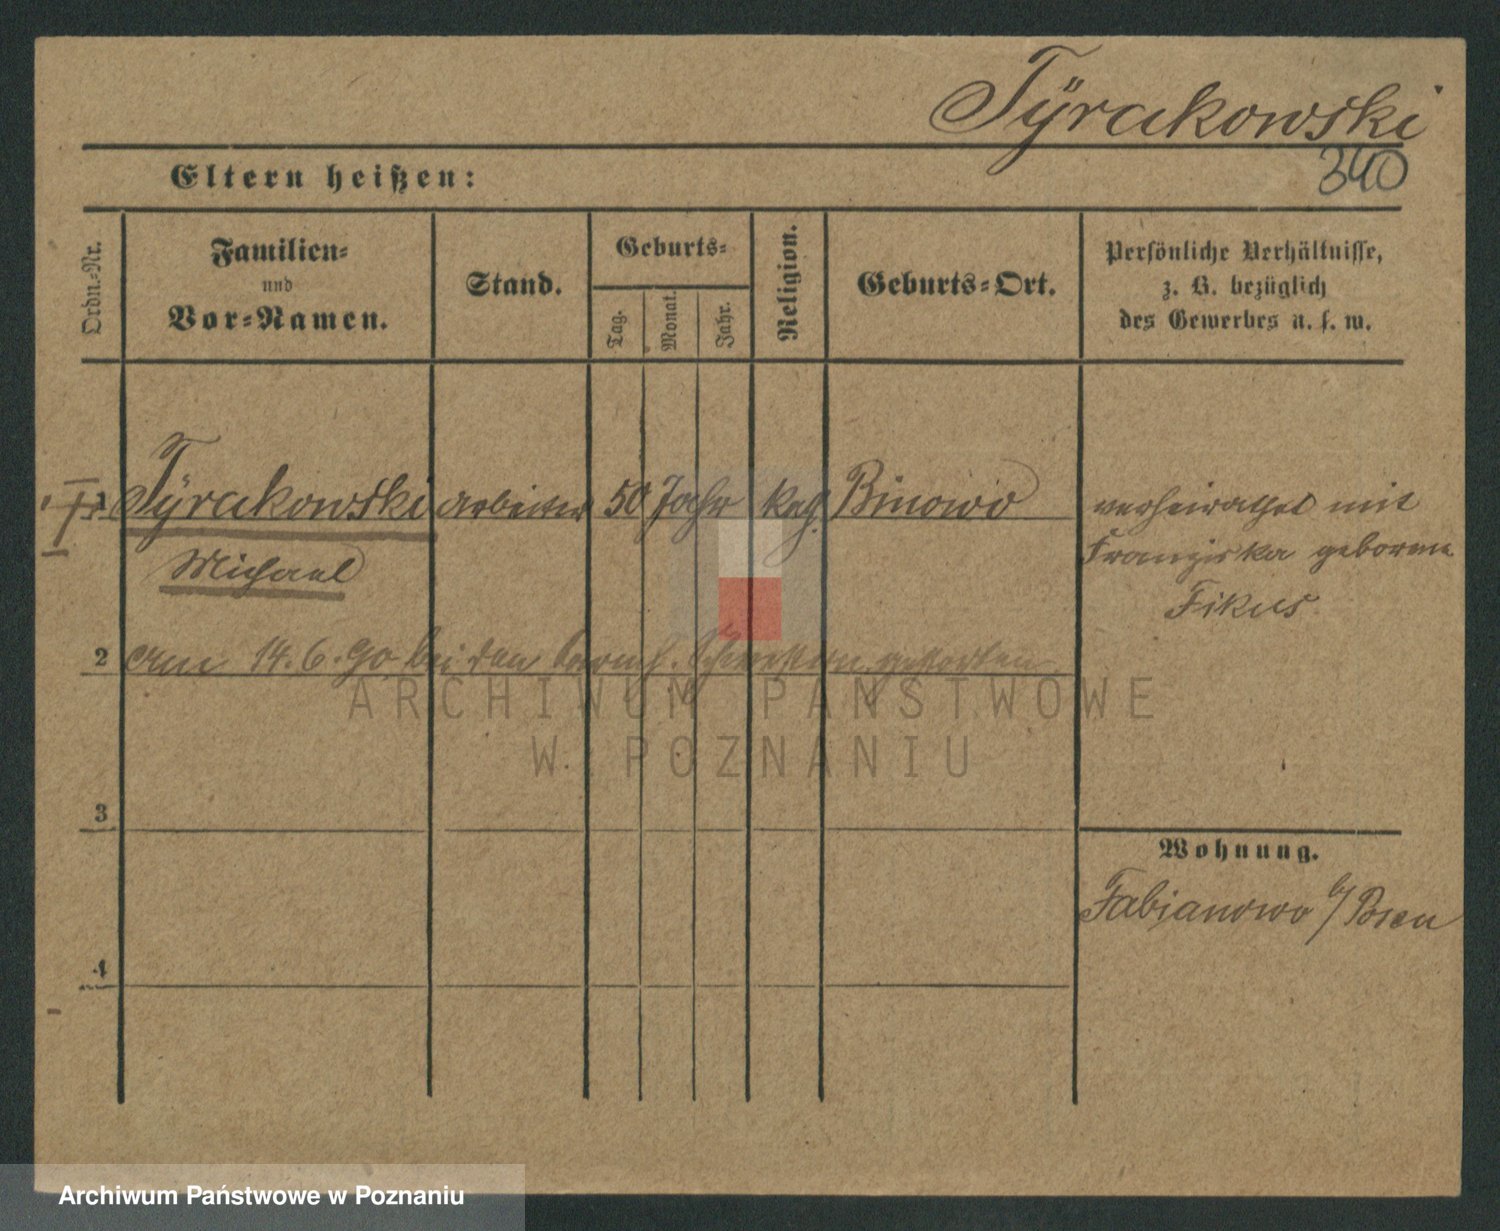 Tÿrakowski
340
Eltern heißen:
Ordn.-Nr.
Familien-
und
Vor-Namen.
Stand.
Geburts-
Tag.
Monat.
Jahr.
Religion.
Geburts-Ort.
Persönliche Verhältnisse,
z. B. bezüglich
des Gewerbes u. s. w.
1 Tÿrakowski Arbeiter 50 Jahr kath. Binowo verheirathet mit
Michael Franziska geborene
Fikus
2 am 14.6.90 bei den barmh. Schwestern gestorben
ARCHIWUM PAŃSTWOWE
W POZNANIU
3
Wohnung.
Fabianowo b/ Posen
4
Archiwum Państwowe w Poznaniu